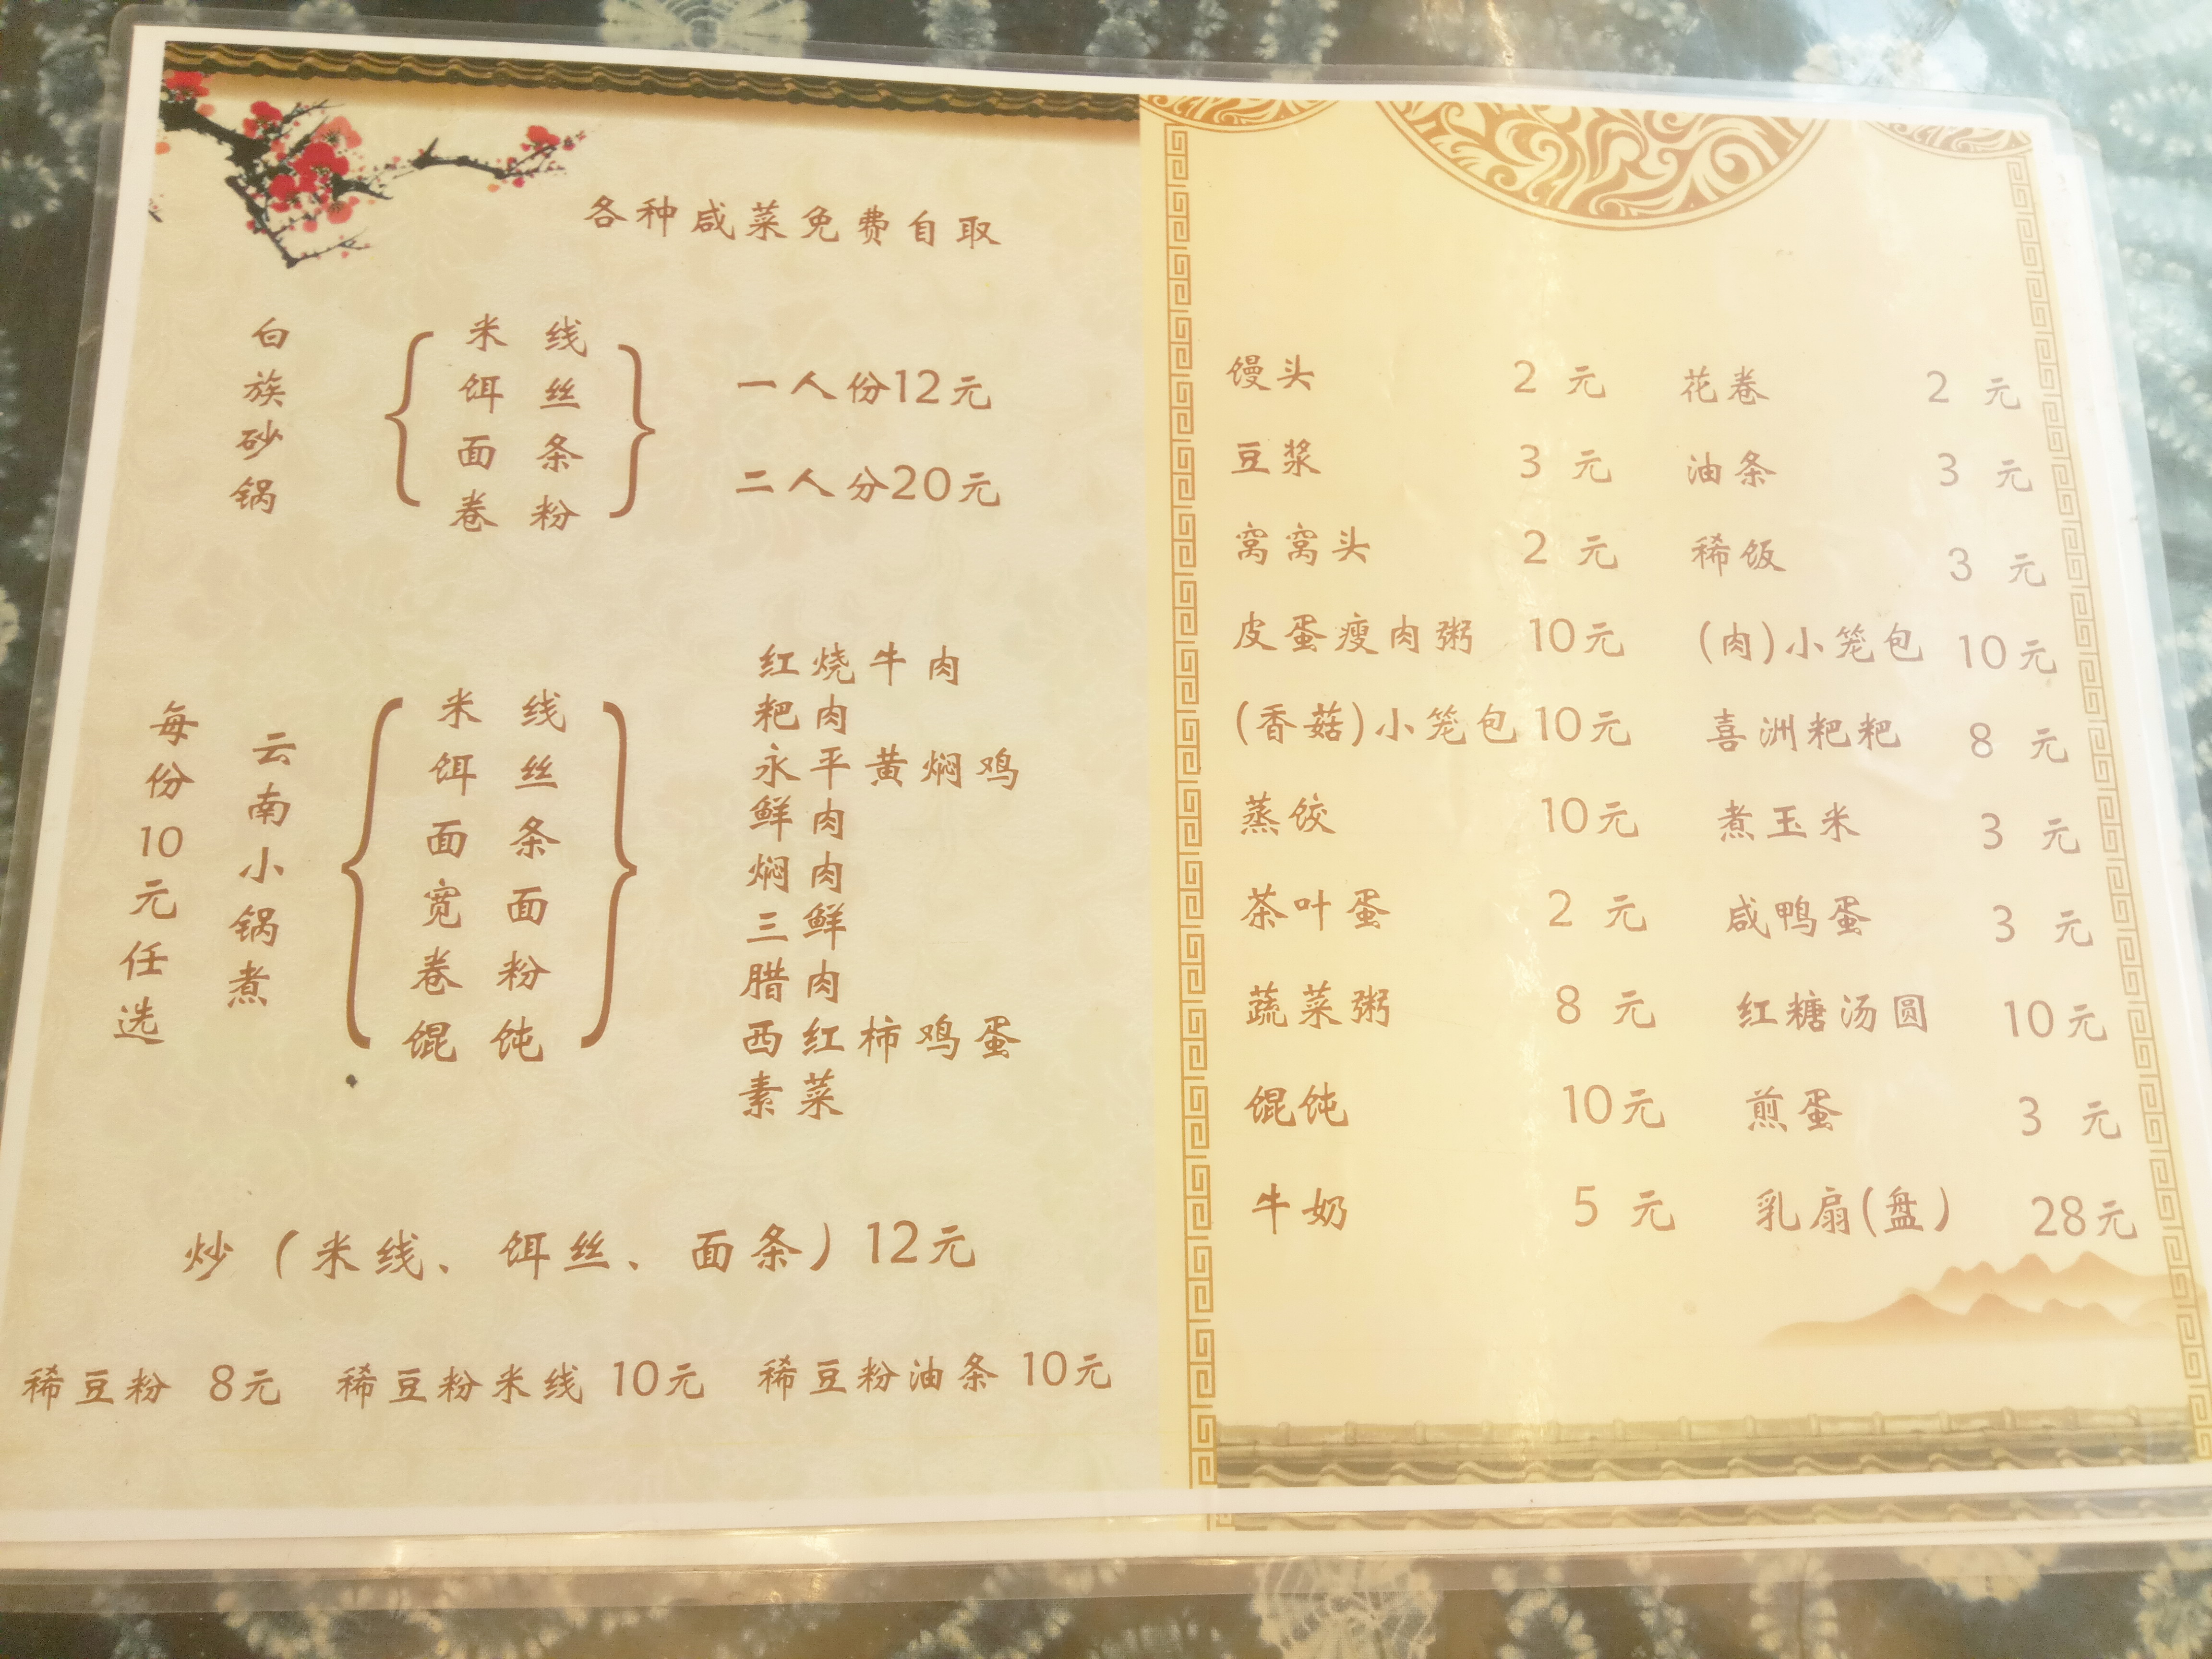 各种咸菜免费自取
白族砂锅
米线
饵丝
面条
卷粉
一人份12元
二人分20元
每份10元任选
云南小锅煮
米线
饵丝
面条
宽面
卷粉
馄饨
红烧牛肉
粑肉
永平黄焖鸡
鲜肉
焖肉
三鲜
腊肉
西红柿鸡蛋
素菜
炒（米线、饵丝、面条）12元
稀豆粉 8元 稀豆粉米线 10元 稀豆粉油条 10元
馒头 2 元 花卷 2 元
豆浆 3 元 油条 3 元
窝窝头 2 元 稀饭 3 元
皮蛋瘦肉粥 10元 (肉)小笼包 10元
(香菇)小笼包 10元 喜洲粑粑 8 元
蒸饺 10元 煮玉米 3 元
茶叶蛋 2 元 咸鸭蛋 3 元
蔬菜粥 8 元 红糖汤圆 10元
馄饨 10元 煎蛋 3 元
牛奶 5 元 乳扇(盘) 28元